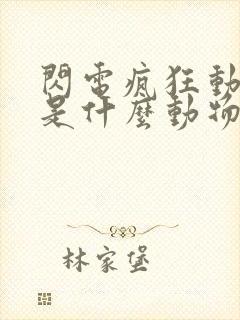 閃電瘋狂動
是什麼動物
林家堡